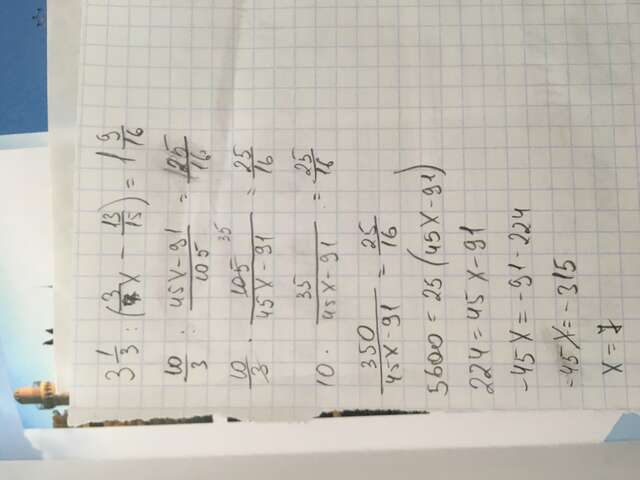 3 1/3 : (3/7 x − 13/15) = 1 9/16
10/3 : (45x−91)/105 = 25/16
10/3 · 105 35/(45x−91) = 25/16
10 · 35/(45x−91) = 25/16
350/(45x−91) = 25/16
5600 = 25 (45x−91)
224 = 45x−91
−45x = −91−224
−45x = −315
x = 7